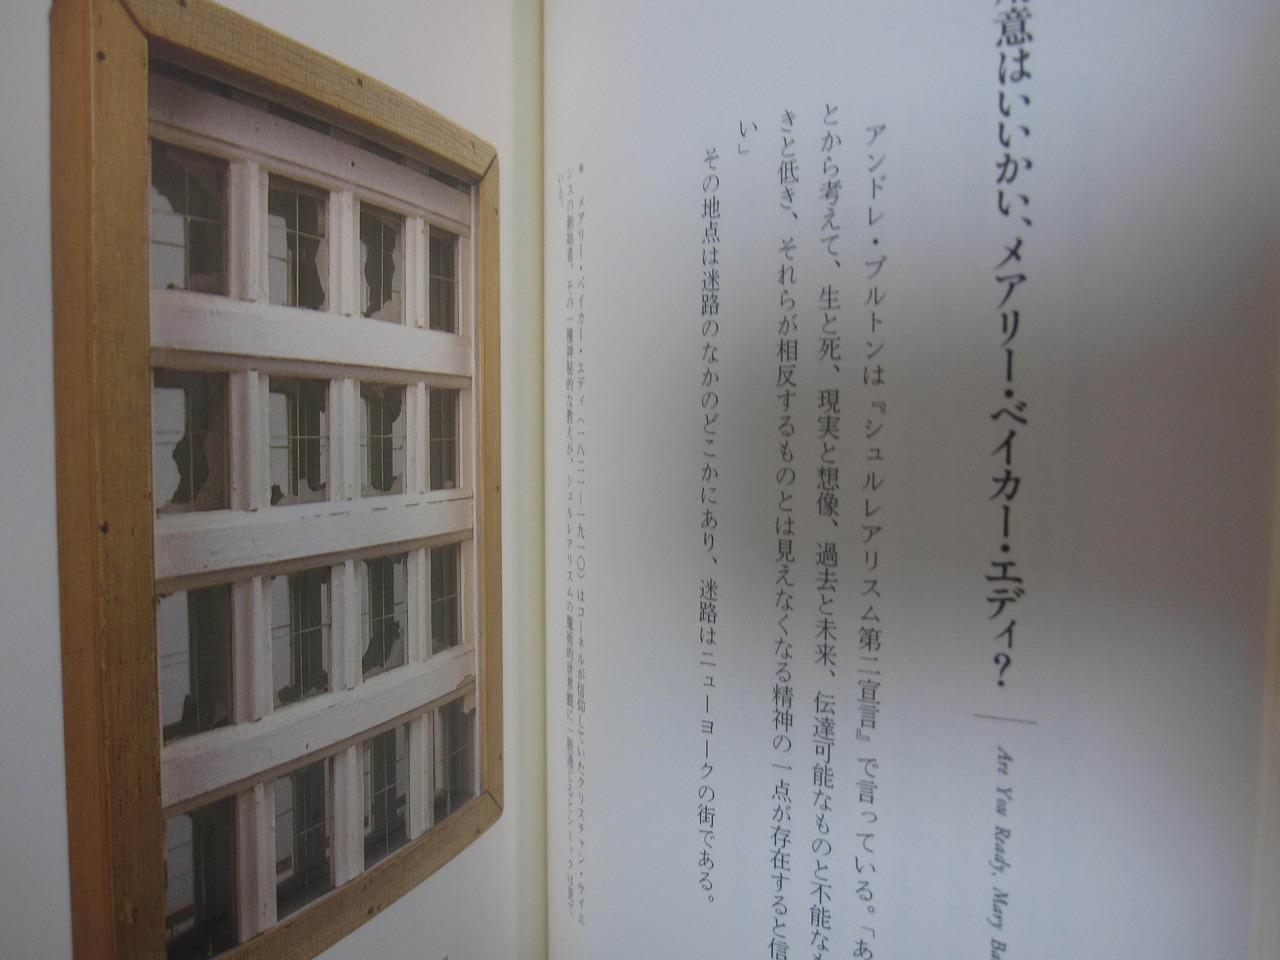 意はいいかい、メアリー・ベイカー・エディ？
Are You Ready, Mary Ba
アンドレ・ブルトンは『シュルレアリスム第二宣言』で言っている。「あ
とから考えて、生と死、現実と想像、過去と未来、伝達可能なものと不能な
きと低き、それらが相反するものとは見えなくなる精神の一点が存在すると信
い」
その地点は迷路のなかのどこかにあり、迷路はニューヨークの街である。
＊ メアリー・ベイカー・エディ（一八二一―一九一〇）はコーネルが信仰していたクリスチャン・サイエ
ンスの創始者。その一種神秘的な教えが、シュルレアリスムの魔術的世界観に一脈通じるとシミックは見て
いる。